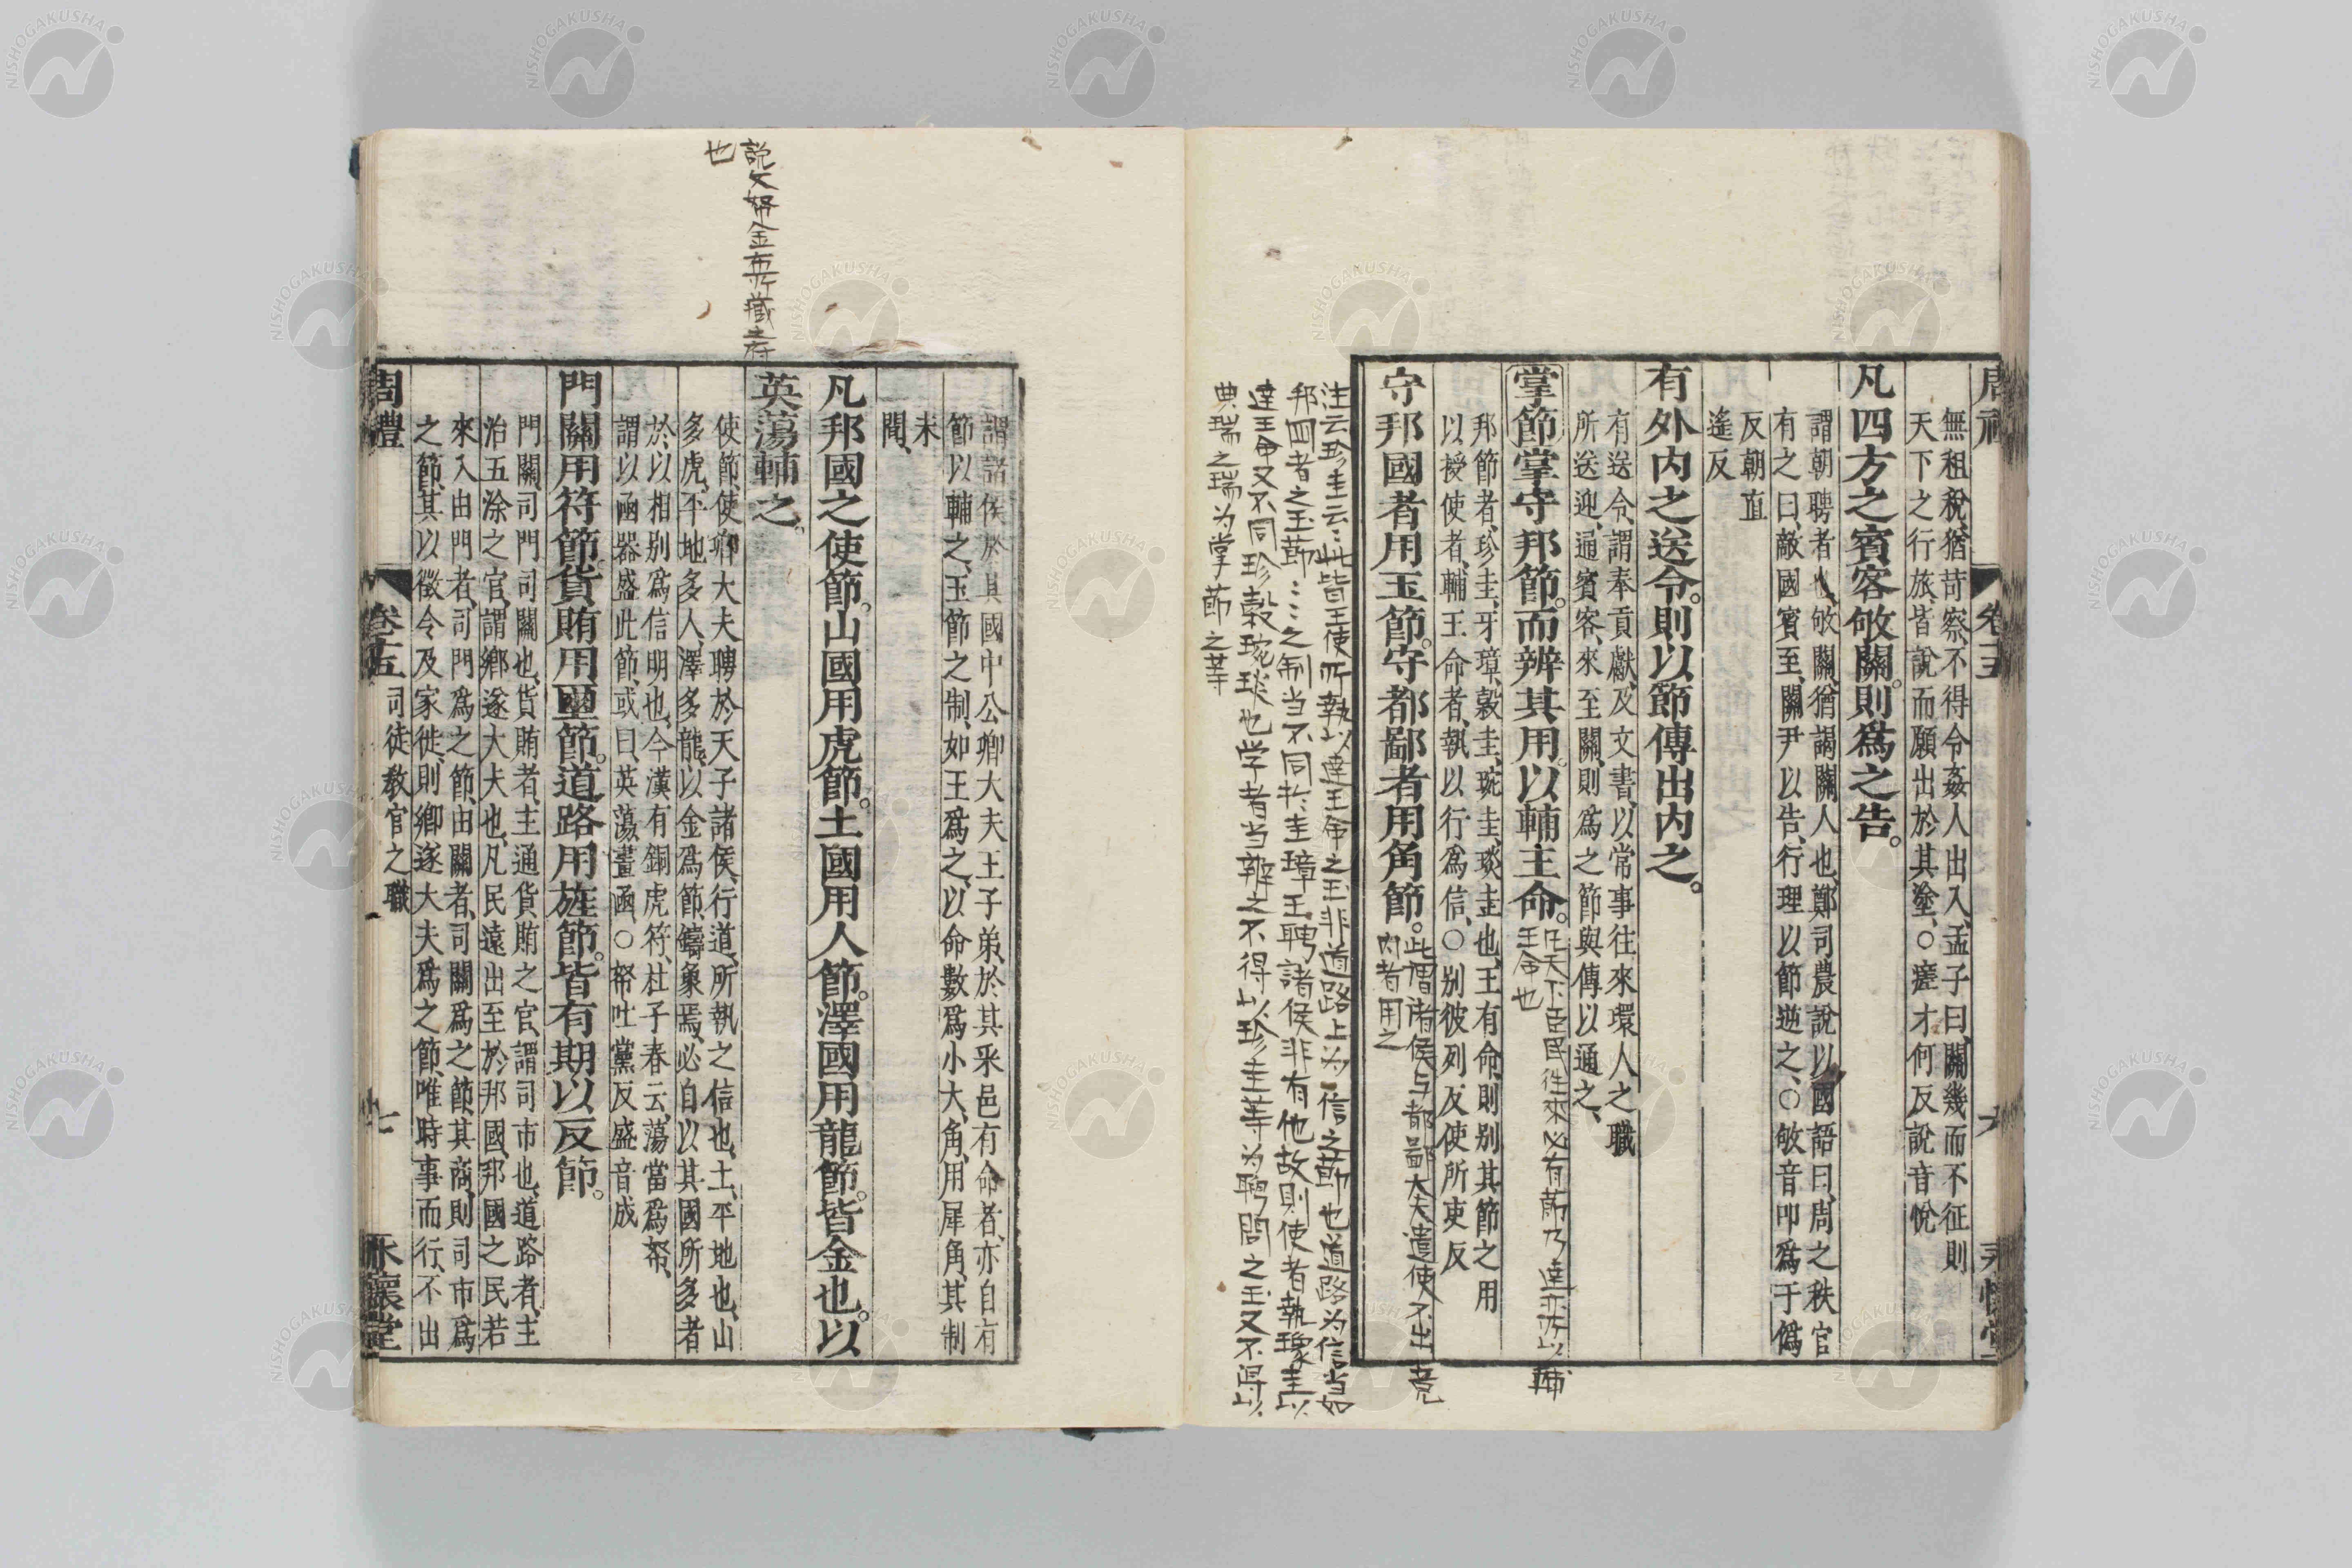 無租稅猶苛察不得令姦人出入孟子曰關幾而不征則
天下之行旅皆說而願出於其塗○瘥才何反說音悅
凡四方之賓客敂關則爲之告
謂朝聘者也敂關猶謁關人也鄭司農說以國語曰周之秩官
有之曰敵國賓至關尹以告行理以節逆之○敂音叩爲于僞
反朝直
遙反
有外內之送令則以節傳出內之
有送令謂奉貢獻及文書以常事往來環人之職
所送迎通賓客來至關則爲之節與傳以通之
掌節掌守邦節而辨其用以輔王命
凡天下臣民往來必有節乃達亦所以輔
王命也
邦節者珍圭牙璋穀圭琬圭琰圭也王有命則別其節之用
以授使者輔王命者執以行爲信○別彼列反使所吏反
守邦國者用玉節守都鄙者用角節
此謂諸侯与都鄙大夫遣使不出竟
內者用之
注云珍圭云〻此皆王使所執以達王命之玉非道路上为信之節也道路为信当如
邦四者之玉節……之制当不同於圭璋王聘諸侯非有他故則使者執瑑圭以
達王命又不同珍穀琬琰也学者当辨之不得以珍圭等为聘問之玉又不得以
典瑞之瑞为掌節之等
說文帑金布所藏之府
也
謂諸侯於其國中公卿大夫王子弟於其采邑有命者亦自有
節以輔之玉節之制如王爲之以命數爲小大角用犀角其制
未
聞
凡邦國之使節山國用虎節土國用人節澤國用龍節皆金也以
英蕩輔之
使節使卿大夫聘於天子諸侯行道所執之信也土平地也山
多虎平地多人澤多龍以金爲節鑄象焉必自以其國所多者
於以相別爲信明也今漢有銅虎符杜子春云蕩當爲帑
謂以函器盛此節或曰英蕩畫函○帑吐黨反盛音成
門關用符節貨賄用璽節道路用旌節皆有期以反節
門關司門司關也貨賄者主通貨賄之官謂司市也道路者主
治五涂之官謂鄉遂大夫也凡民遠出至於邦國邦國之民若
來入由門者司門爲之節由關者司關爲之節其商則司市爲
之節其以徵令及家徙則鄉遂大夫爲之節唯時事而行不出
周禮 卷十五 司徒教官之職 七 永懷堂